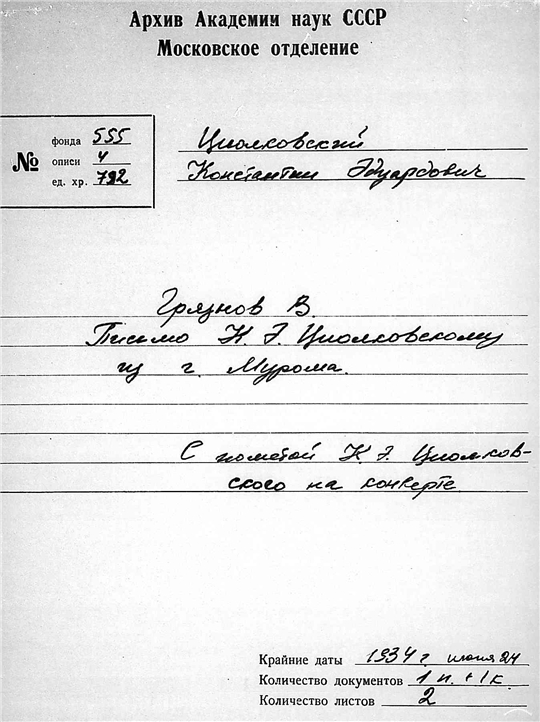 Архив Академии наук СССР
Московское отделение
№
фонда 555
описи 4
ед. хр. 792
Циолковский
Константин Эдуардович
Грязнов В.
Письмо К. Э. Циолковскому
из г. Мурома.
С пометой К. Э. Циолков-
ского на конверте
Крайние даты 1934 г. июня 24
Количество документов 1 п. + 1 к.
Количество листов 2